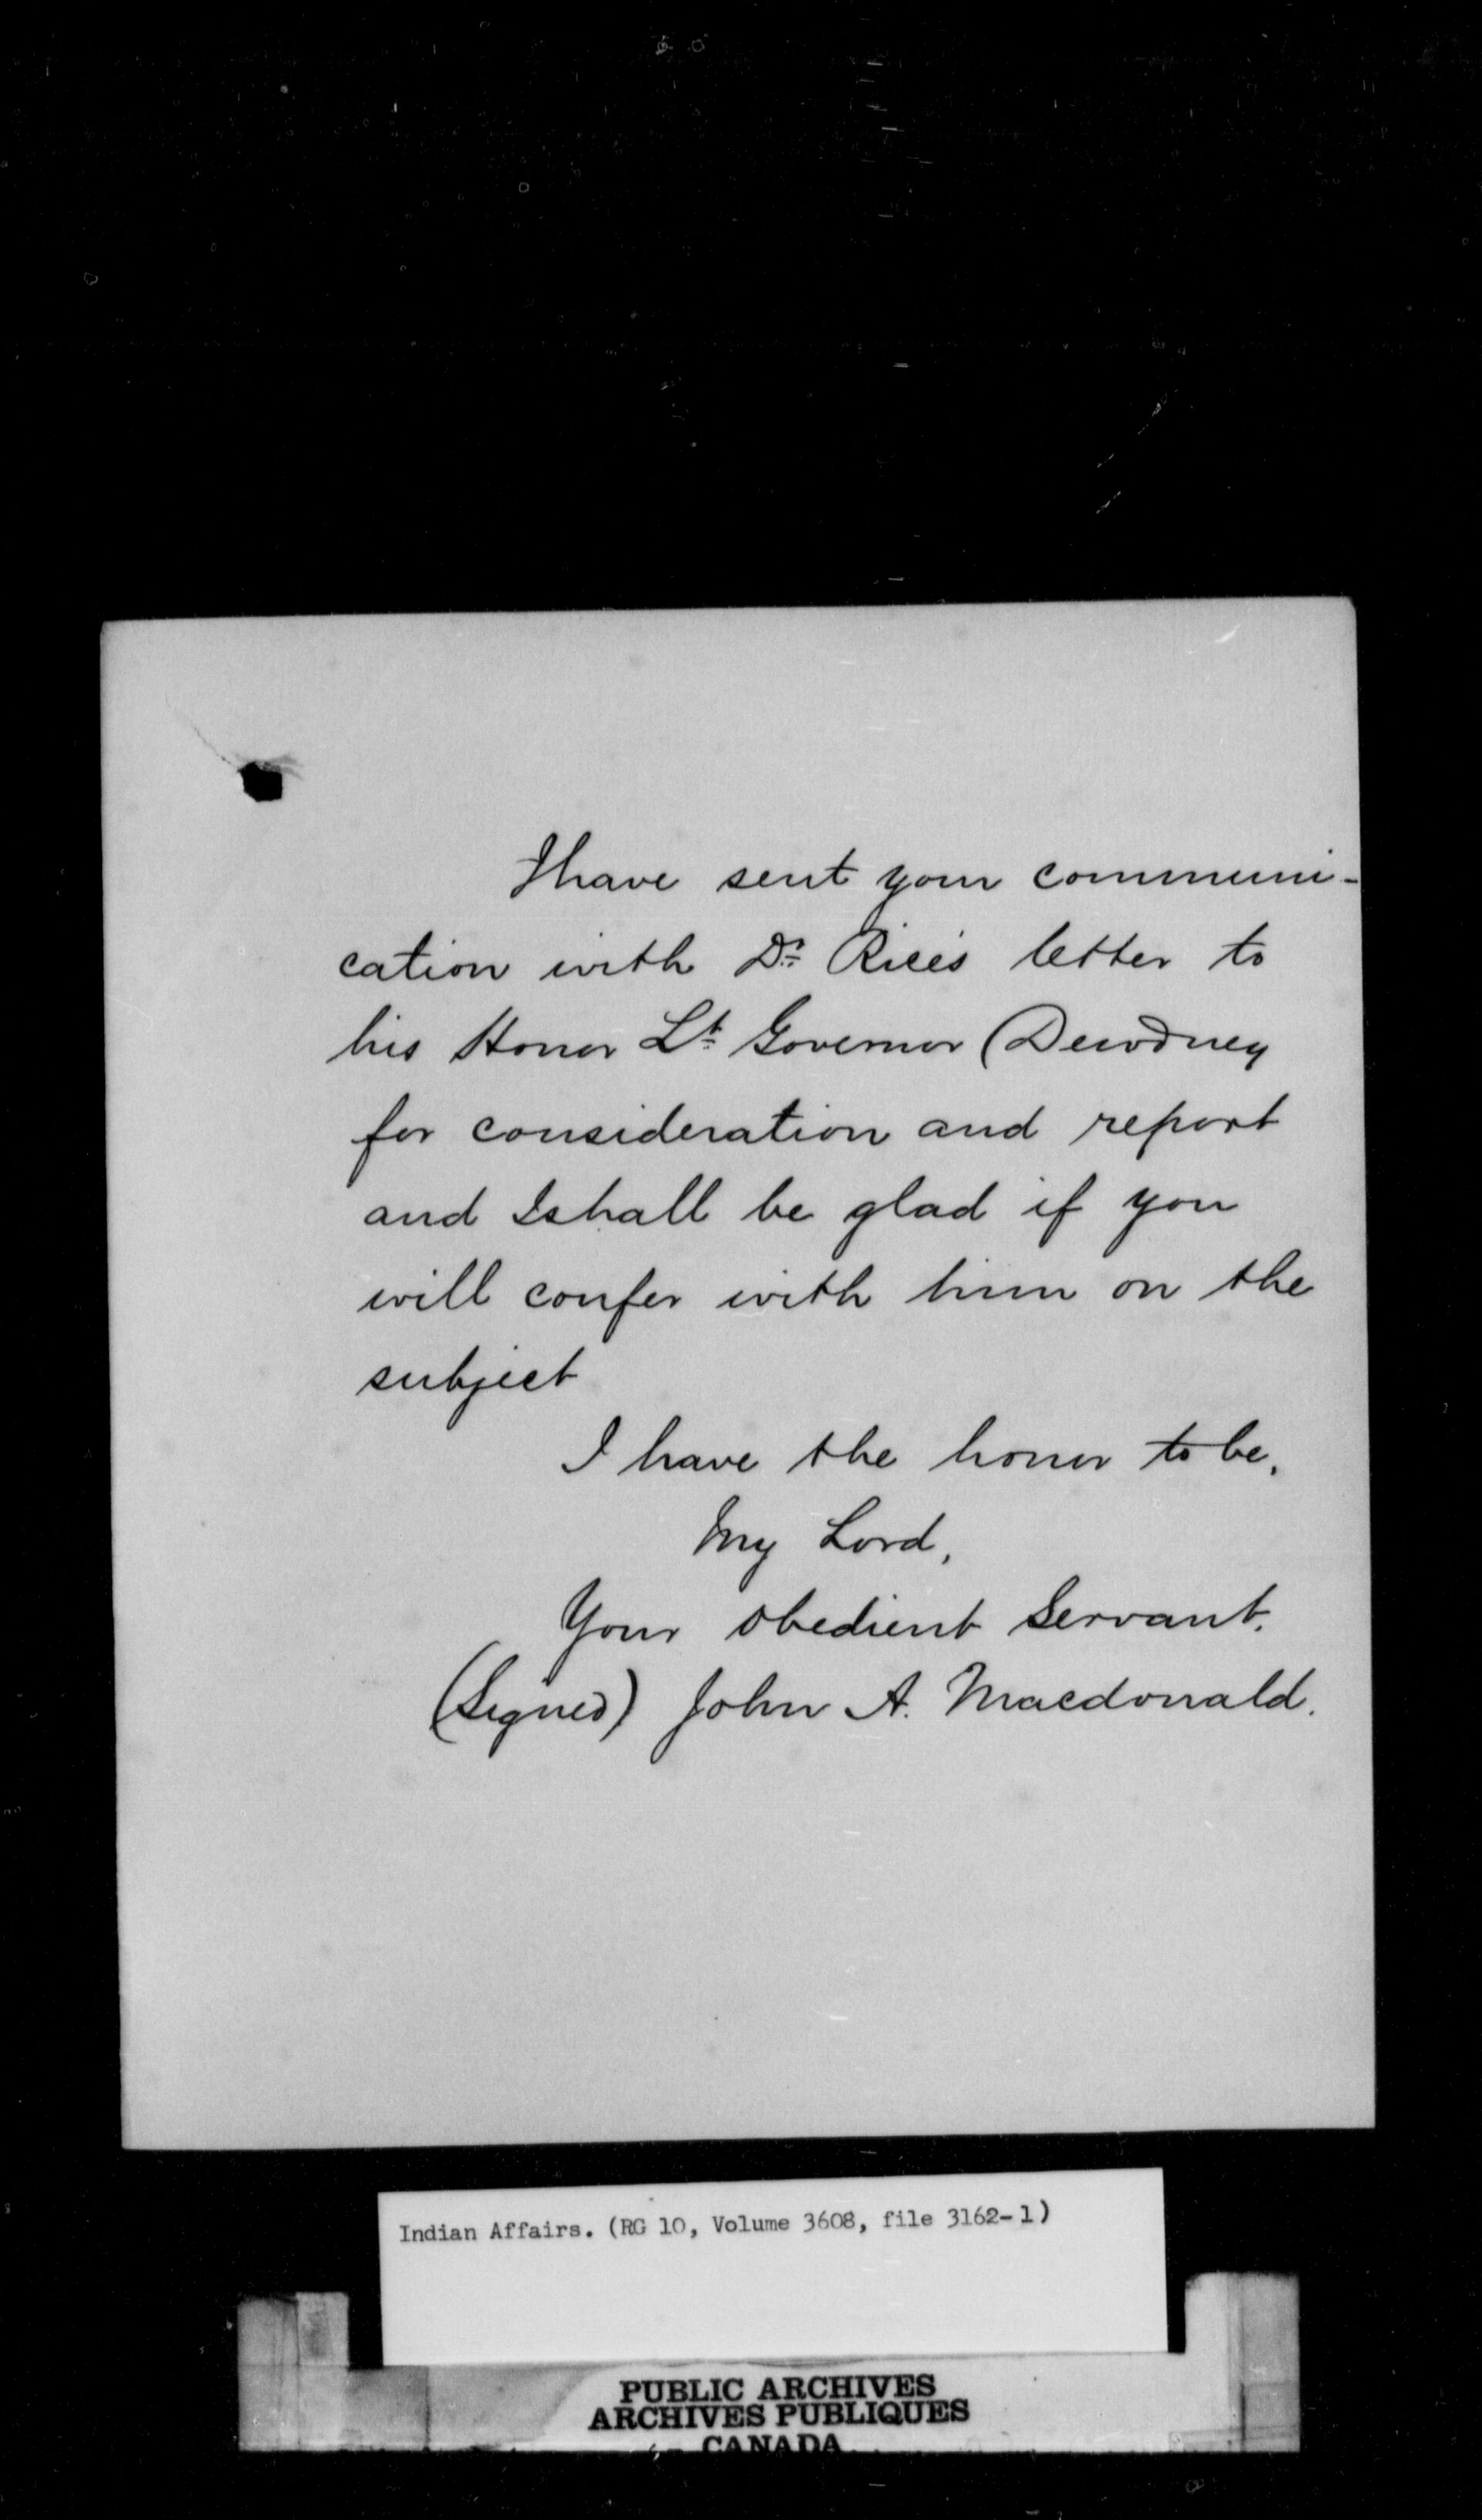 I have sent your communi-
cation with Dr. Rice's letter to
his Honor Lt. Governor Dewdney
for consideration and report
and I shall be glad if you
will confer with him on the
subject
I have the honor to be,
My Lord,
Your obedient Servant.
(Signed) John A. Macdonald.
Indian Affairs. (RG 10, Volume 3608, file 3162-1)
PUBLIC ARCHIVES
ARCHIVES PUBLIQUES
CANADA